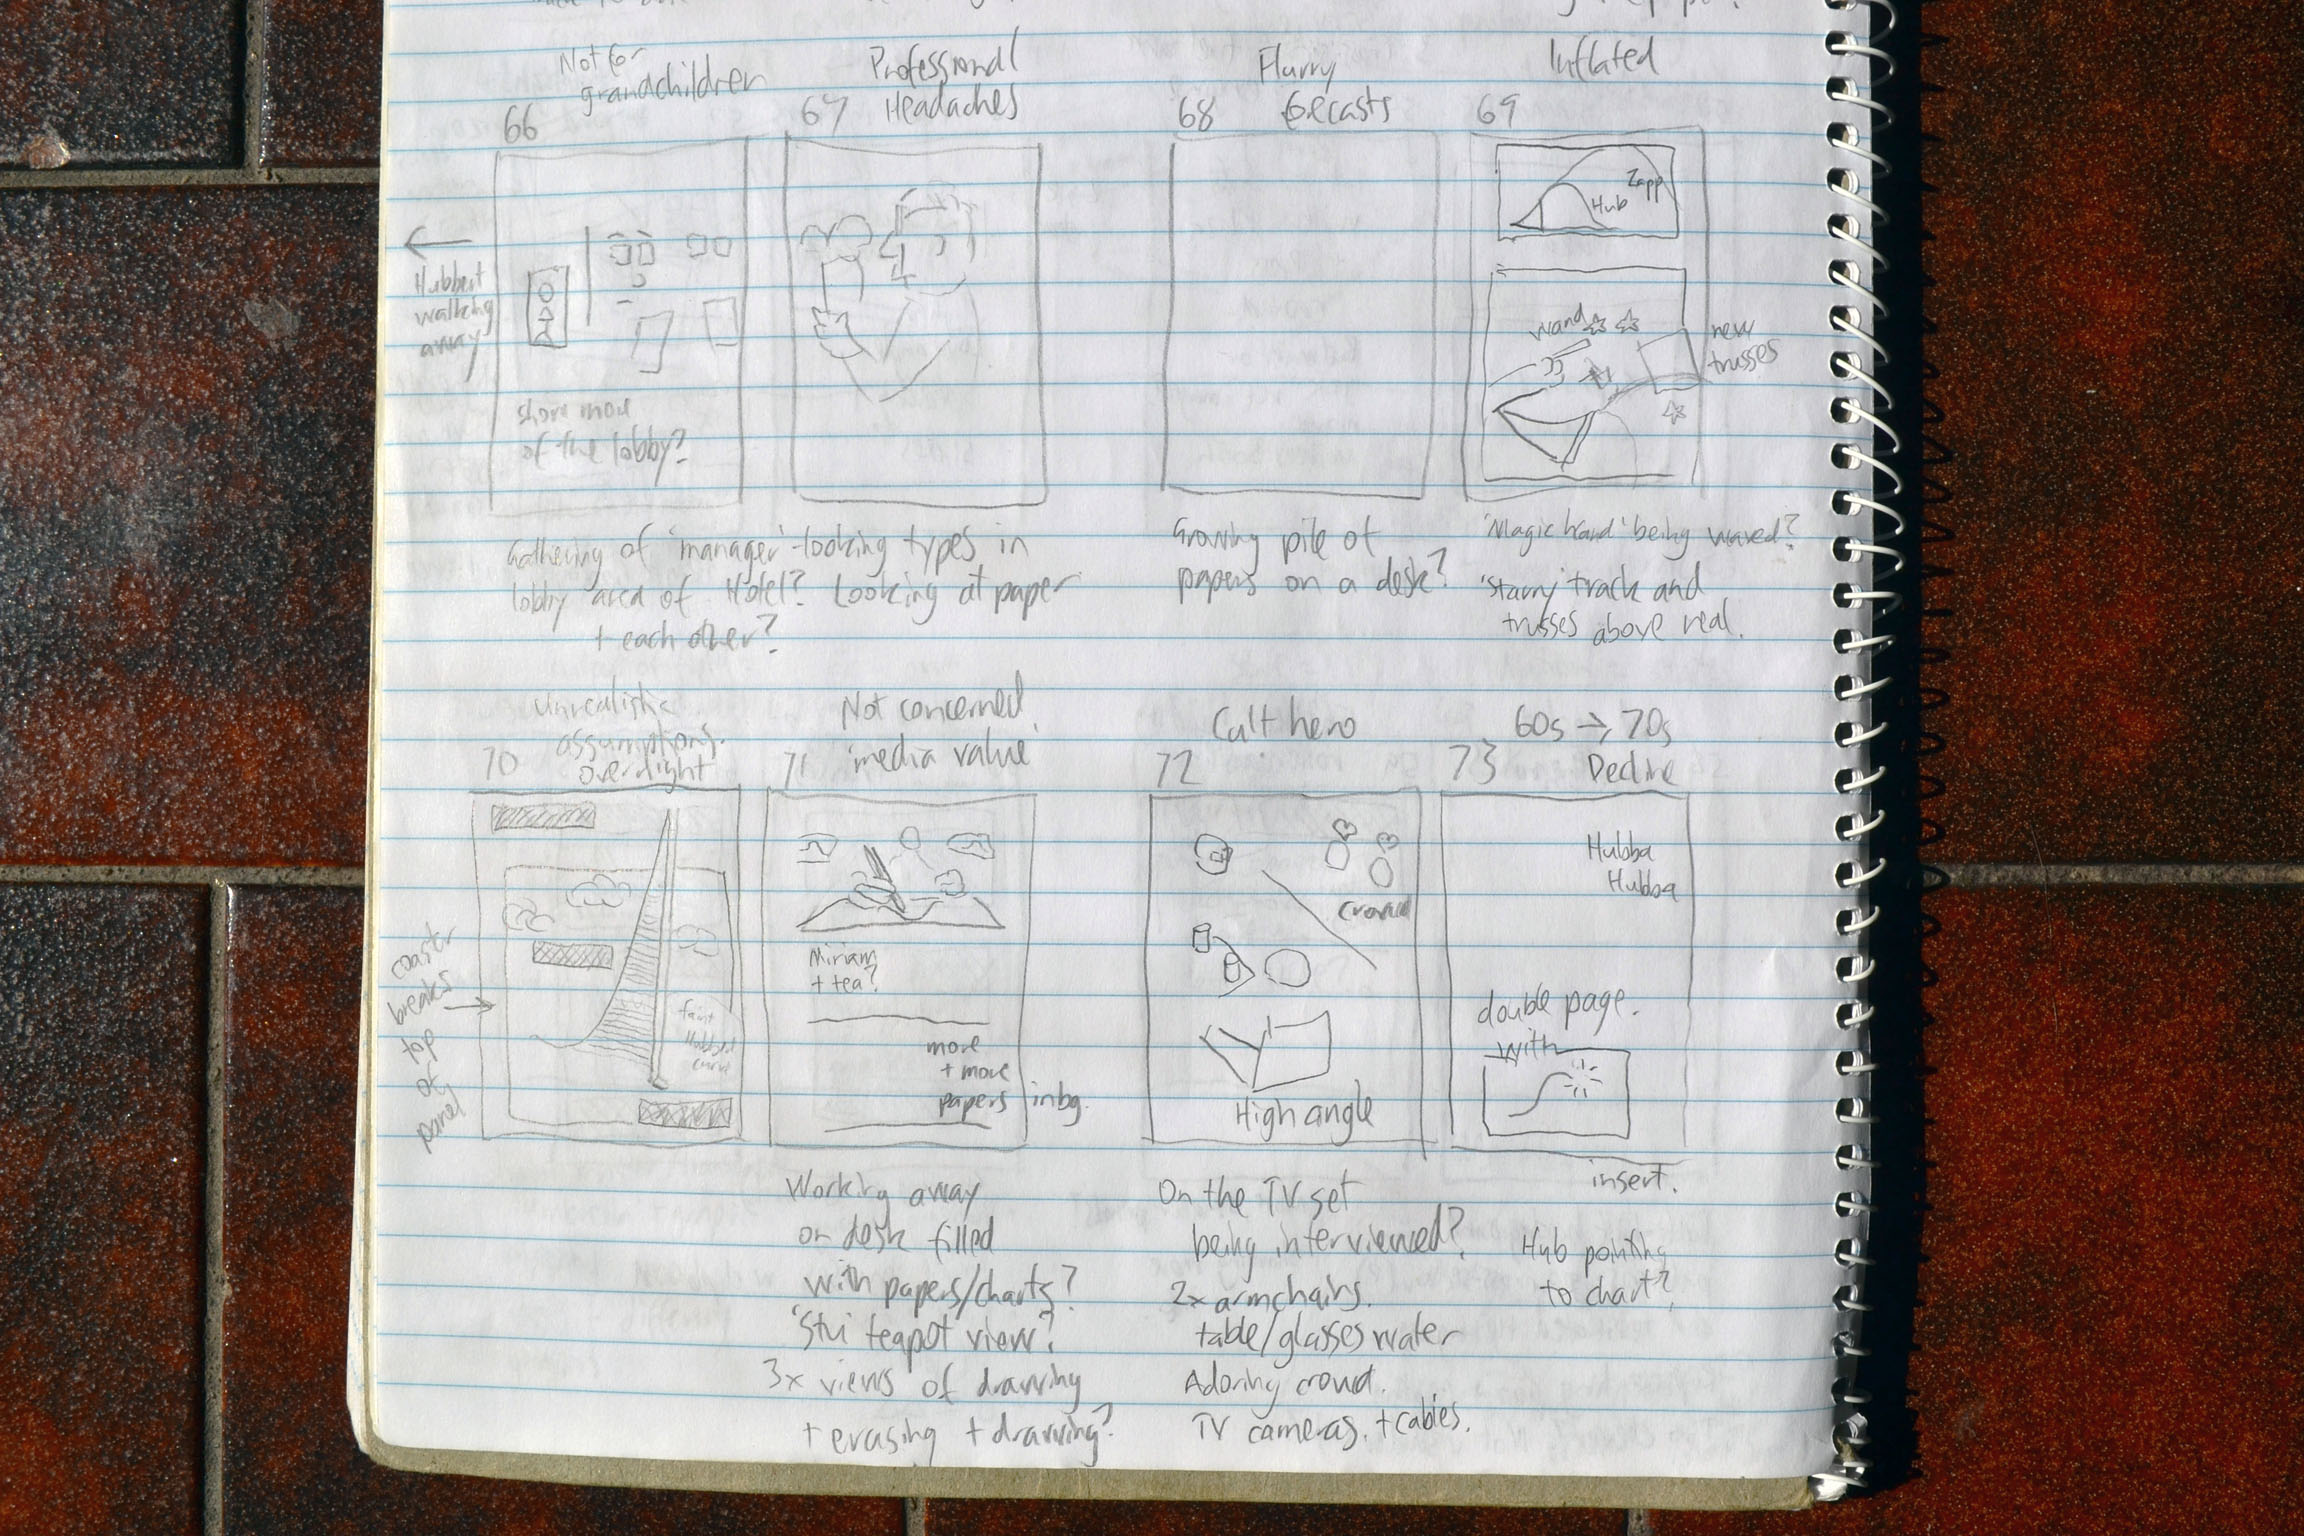 Not for
grandchildren
66
Professional
67 Headaches
Flurry
68 forecasts
Inflated
69
Hubbert
walking
away
show more
of the lobby?
Zapp
Hub
wand
new
trusses
Gathering of 'manager'-looking types in
lobby area of Hotel? Looking at paper
+ each other?
Growing pile of
papers on a desk?
'Magic hand' being waved?
'starry' track and
trusses above real.
Unrealistic
assumptions.
70 overnight
Not concerned
71 'media value'
Cult hero
72
60s → 70s
73 Decline
coaster
breaks
top
of
panel
faint
Hubbert
curve
Miriam
+ tea?
more
+ more
papers in bg.
crowd
High angle
Hubba
Hubba
double page.
with
insert.
Working away
on desk filled
with papers/charts?
'Stu' teapot view?
3x views of drawing
+ erasing + drawing?
On the TV set
being interviewed?
2x armchairs.
table/glasses water
Adoring crowd.
TV cameras. + cables.
Hub pointing
to chart?